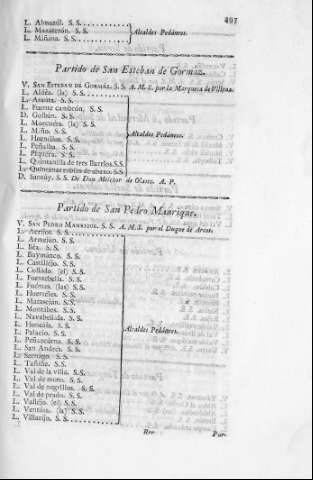 497
L. Almazul. S. S.
L. Mazaterón. S. S.
L. Miñana. S. S.
Alcaldes Pedáneos.
Partido de San Esteban de Gormaz.
V. SAN ESTEBAN DE GORMAZ. S. S. A. M. S. por la Marquesa de Villena.
L. Aldéa. (la) S. S.
L. Atauta. S. S.
L. Fuente cambrón. S. S.
D. Golbán. S. S.
L. Morcuéra. (la) S. S.
L. Miño. S. S.
L. Hornillos. S. S.
L. Peñalba. S. S.
L. Piquéra. S. S.
L. Quintanilla de tres Barrios. S. S.
L. Quintanas rubias de abaxo. S. S.
Alcaldes Pedáneos.
D. Sanúy. S. S. De Don Melchor de Olasco. A. P.
Partido de San Pedro Manrique.
V. SAN PEDRO MANRIQUE. S. S. A. M. S. por el Duque de Arcos.
L. S. S.
L. Armejún. S. S.
L. Béa. S. S.
L. Buymanco. S. S.
L. Castilléjo. S. S.
L. Collado. (el) S. S.
L. Fuentebella. S. S.
L. Fuéntes. (las) S. S.
L. Huerteles. S. S.
L. Matasejún. S. S.
L. Montabes. S. S.
L. Navabellida. S. S.
L. S. S.
L. Palacio. S. S.
L. Peñazcurna. S. S.
L. San Andrés. S. S.
L. Sarnago. S. S.
L. Taniñe. S. S.
L. Val de la villa. S. S.
L. Val de moro. S. S.
L. Val de negrillos. S. S.
L. Val de prado. S. S.
L. Valléjo. (el) S. S.
L. Ventósa. (la) S. S.
L. Villaríjo. S. S.
Alcaldes Pedáneos.
Rrr
Par-